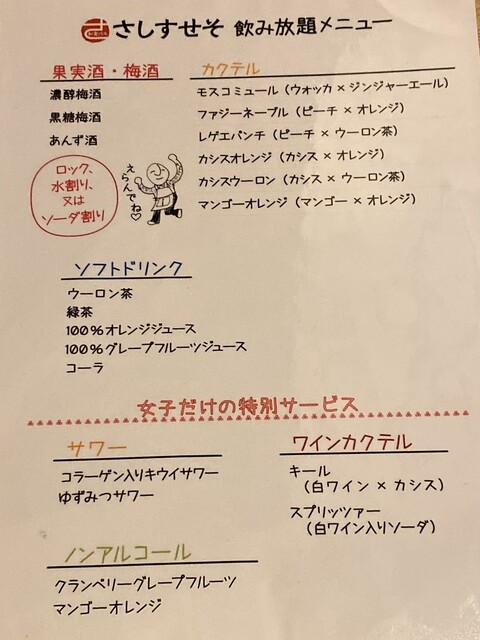 さしすせそ 飲み放題メニュー
果実酒・梅酒
濃醇梅酒
黒糖梅酒
あんず酒
ロック、
水割り、
又は
ソーダ割り
えらんでね♡
カクテル
モスコミュール（ウォッカ × ジンジャーエール）
ファジーネーブル（ピーチ × オレンジ）
レゲエパンチ（ピーチ × ウーロン茶）
カシスオレンジ（カシス × オレンジ）
カシスウーロン（カシス × ウーロン茶）
マンゴーオレンジ（マンゴー × オレンジ）
ソフトドリンク
ウーロン茶
緑茶
100％オレンジジュース
100％グレープフルーツジュース
コーラ
女子だけの特別サービス
サワー
コラーゲン入りキウイサワー
ゆずみつサワー
ワインカクテル
キール
（白ワイン × カシス）
スプリッツァー
（白ワイン入りソーダ）
ノンアルコール
クランベリーグレープフルーツ
マンゴーオレンジ